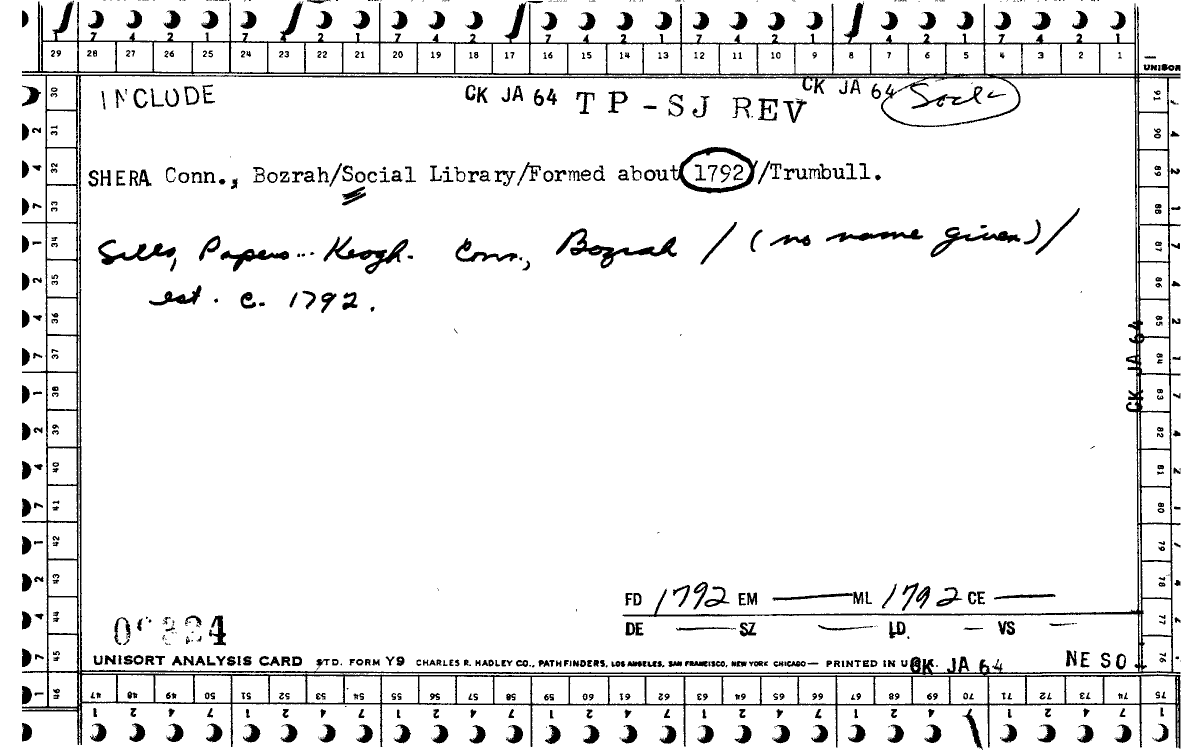 7 4 2 1 7 4 2 1 7 4 2 1 7 4 2 1 7 4 2 1 7 4 2 1
29 28 27 26 25 24 23 22 21 20 19 18 17 16 15 14 13 12 11 10 9 8 7 6 5 4 3 2 1
UNISOR
INCLUDE CK JA 64 TP-SJ REV CK JA 64
SHERA Conn., Bozrah/Social Library/Formed about 1792//Trumbull.
Sills, Papers... Keogh. Conn., Bozrah / (no name given) /
est. c. 1792.
CK JA 64
FD 1792 EM — ML 1792 CE —
DE — SZ — LD. — VS —
UNISORT ANALYSIS CARD STD. FORM Y9 CHARLES R. HADLEY CO., PATHFINDERS, LOS ANGELES, SAN FRANCISCO, NEW YORK CHICAGO— PRINTED IN U.S.A. CK JA 64 NE SO
30 31 32 33 34 35 36 37 38 39 40 41 42 43 44 45 46
91 90 89 88 87 86 85 84 83 82 81 80 79 78 77 76 75
47 48 49 50 51 52 53 54 55 56 57 58 59 60 61 62 63 64 65 66 67 68 69 70 71 72 73 74 75
1 2 4 7 1 2 4 7 1 2 4 7 1 2 4 7 1 2 4 7 1 2 4 7 1 2 4 7 1